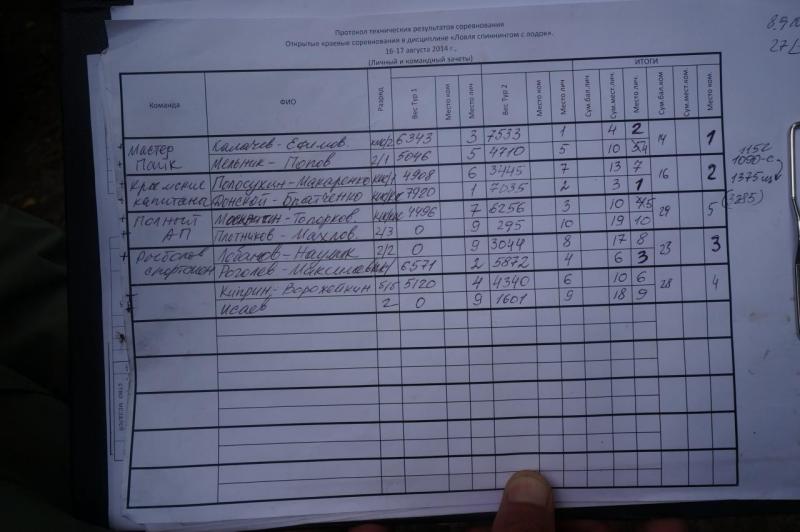 Протокол технических результатов соревнования
Открытые краевые соревнования в дисциплине «Ловля спиннингом с лодок».
16-17 августа 2014 г.,
(Личный и командный зачеты)
Команда ФИО Разряд Вес Тур 1 Место ком Место лич Вес Тур 2 Место ком Место лич ИТОГИ Сум.бал.лич Сум.мест.лич. Место лич. Сум.бал.ком Сум.мест.ком. Место ком.
Мастер Пайк Калачев-Ефимов 6343 3 7533 1 4 2 14 1
Мельник-Попов 2/1 5046 5 4710 5 10
Крымские капитана Полосухин-Макаренко 4908 6 3445 7 13 7 16 2
Донской-Братченко 7920 1 7035 2 3 1
Полный А-П Топорков 4496 7 6256 3 10 29 5
Плотников-Махлов 2/3 0 9 295 10 19 10
Рыболов спортсмен Лобанов-Наумик 2/2 0 9 3044 8 17 8 23 3
Роголев 6571 2 5872 4 6 3
Киприн-Ворохевкин б/б 5120 4 4340 6 10 6 28 4
Исаев 2 0 9 1601 9 18 9
1090-с
1375
(3285)
27